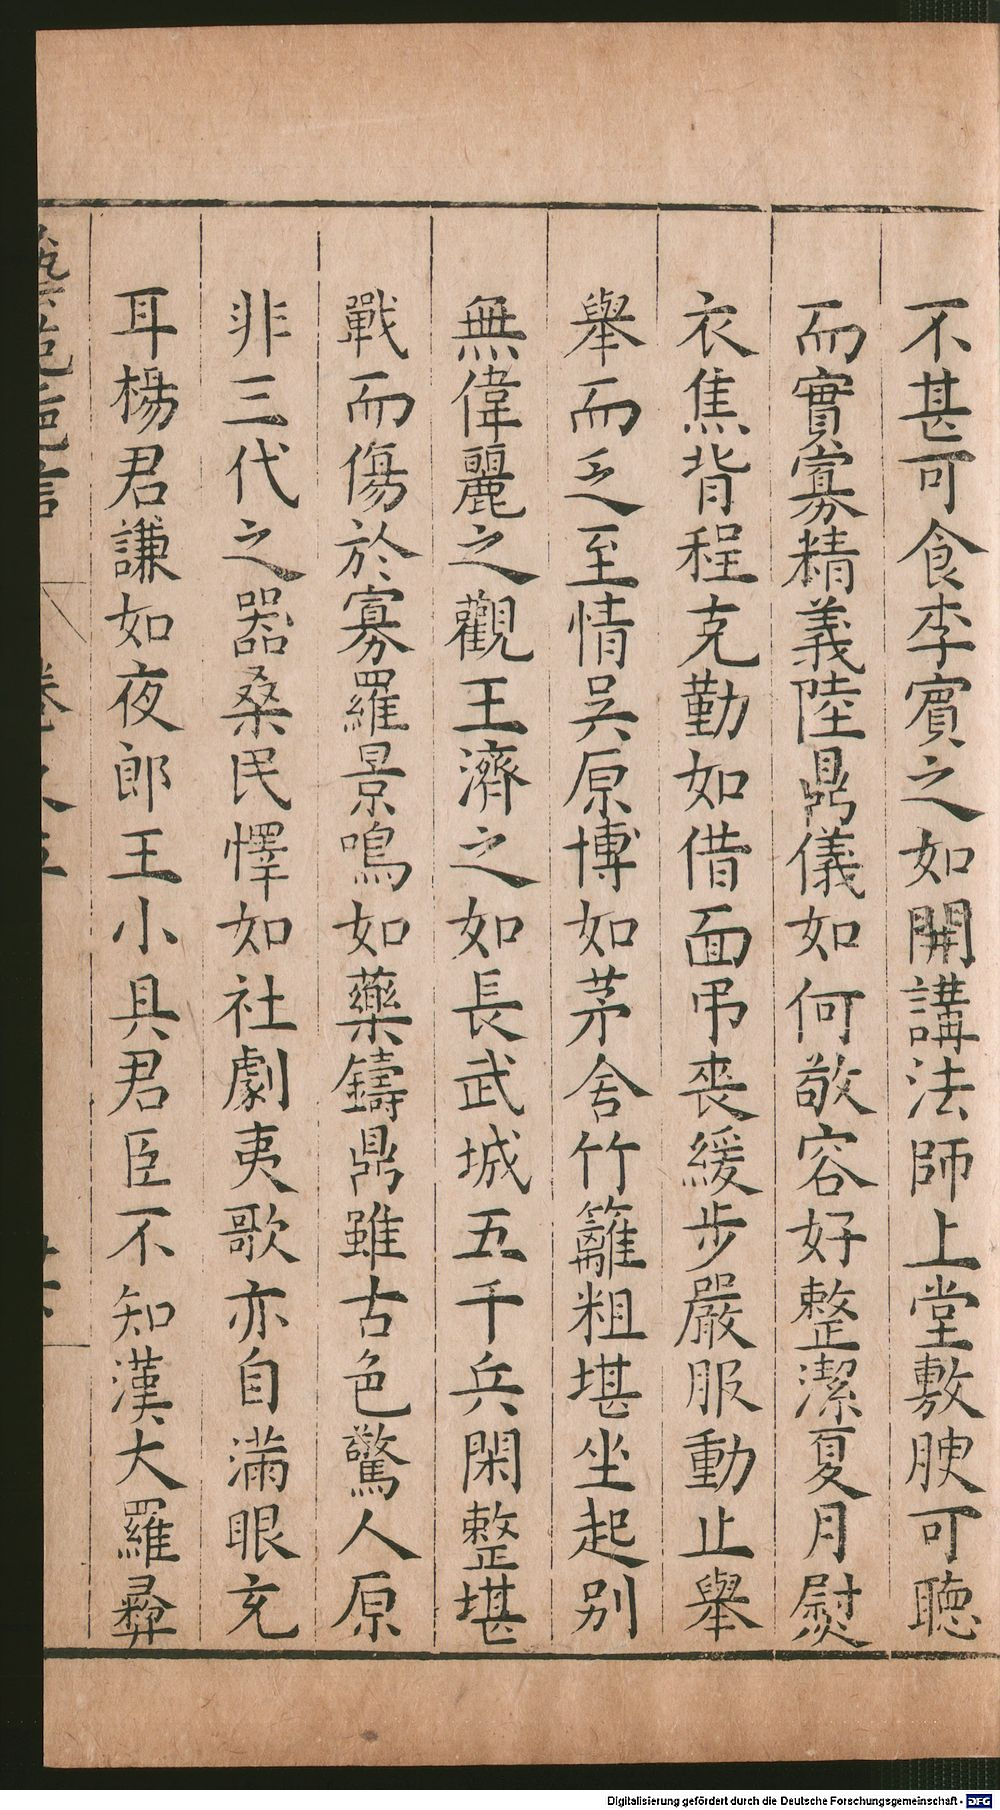 不甚可食李賓之如開講法師上堂敷腴可聽
而實寡精義陸鼎儀如何敬容好整潔夏月熨
衣焦背程克勤如借面弔喪緩步嚴服動止舉
舉而乏至情吳原博如茅舍竹籬粗堪坐起別
無偉麗之觀王濟之如長武城五千兵閑整堪
戰而傷於寡羅景鳴如藥鑄鼎雖古色驚人原
非三代之器桑民懌如社劇夷歌亦自滿眼充
耳楊君謙如夜郎王小具君臣不知漢大羅彞
藝苑巵言 卷之五
Digitalisierung gefördert durch die Deutsche Forschungsgemeinschaft - DFG